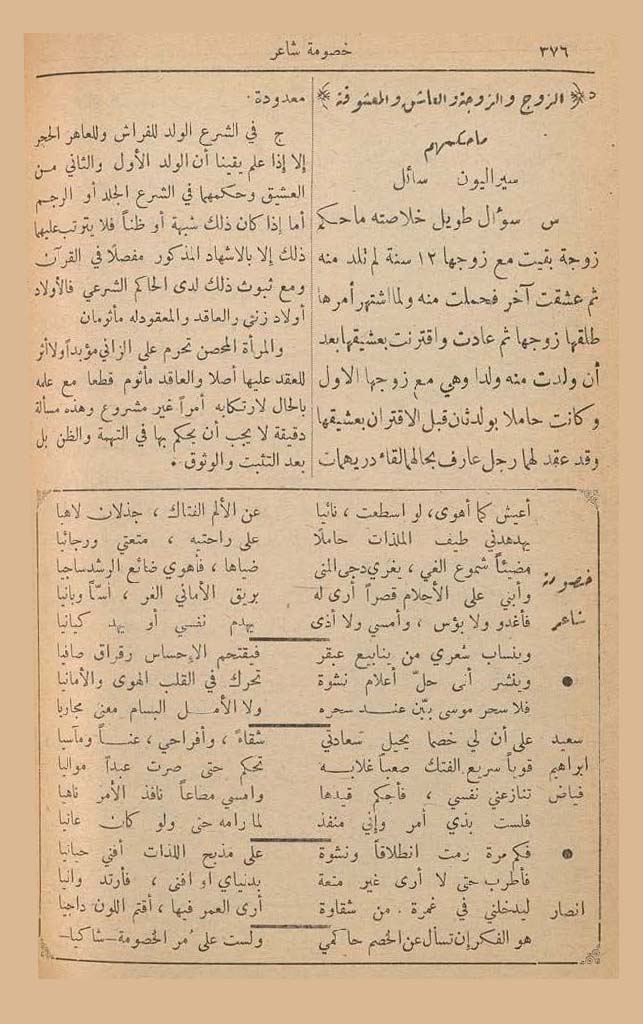 ٣٧٦
خصومة شاعر
الزوج والزوجة والعاشق والمعشوقة
ما حكمهم
سيراليون سائل
س سؤال طويل خلاصته ما حكم
زوجة بقيت مع زوجها ١٢ سنة لم تلد منه
ثم عشقت آخر فحملت منه ولما اشتهر أمرها
طلقها زوجها ثم عادت واقترنت بعشيقها بعد
أن ولدت منه ولدا وهي مع زوجها الاول
وكانت حاملا بولد ثان قبل الاقتران بعشيقها
وقد عقد لهما رجل عارف بحالهما لقاء دريهمات
معدودة .
ج في الشرع الولد للفراش وللعاهر الحجر
إلا إذا علم يقينا أن الولد الأول والثاني من
العشيق وحكمهما في الشرع الجلد أو الرجم
أما إذا كان ذلك شبهة أو ظناً فلا يترتب عليهما
ذلك إلا بالاشهاد المذكور مفصلًا في القرآن
ومع ثبوت ذلك لدى الحاكم الشرعي فالأولاد
أولاد زنى والعاقد والمعقود له مأثومان
والمرأة المحصن تحرم على الزاني مؤبداً ولا أثر
للعقد عليها أصلا والعاقد مأثوم قطعا مع علمه
بالحال لارتكابه أمراً غير مشروع وهذه مسألة
دقيقة لا يجب أن يحكم بها في التهمة والظن بل
بعد التثبت والوثوق .
خصومة
شاعر
●
سعيد
ابراهيم
فياض
●
انصار
أعيش كما أهوى، لو اسطعت ، نائيا عن الألم الفتاك ، جذلان لاهيا
يهدهدني طيف الملذات حاملًا على راحتيه ، متعتي ورجائيا
مضيئاً شموع الغي ، يغري دجى المنى ضياها ، فأهوي ضائع الرشد ساجيا
وأبني على الأحلام قصراً أرى له بريق الأماني الغر ، أسّاً وبانيا
فأغدو ولا بؤس ، وأمسي ولا أذى يهدم نفسي أو يهد كيانيا
وينساب شعري من ينابيع عبقر فيقتحم الإحساس رقراق صافيا
وينشر أنى حلّ أعلام نشوة تحرك في القلب الهوى والأمانيا
فلا سحر موسى بيّن عند سحره ولا الأمل البسام معنى محاربا
على أن لي خصما يحيل سعادتي شقاءً ، وأفراحي ، عنـاً ومآسيا
قوياً سريع الفتك صعباً غلابه تحكم حتى صرت عبداً مواليا
تنازعني نفسي ، فأحكم قيدها وامسي مطاعاً نافذ الأمر ناهيا
فلست بذي أمر وإني منفذ لما رامه حتى ولو كان عاتيا
فكم مرة رمت انطلاقاً ونشوة على مذبح اللذات أفني حياتيا
فأطرب حتى لا أرى غير متعة بدنياي او افنى ، فأرتد وانيا
ليدخلني في غمرة . من شقاوة أرى العمر فيها ، أقتم اللون داجيا
هو الفكر إن تسأل عن الخصم حاكمي ولست على مر الخصومة – شاكيا –